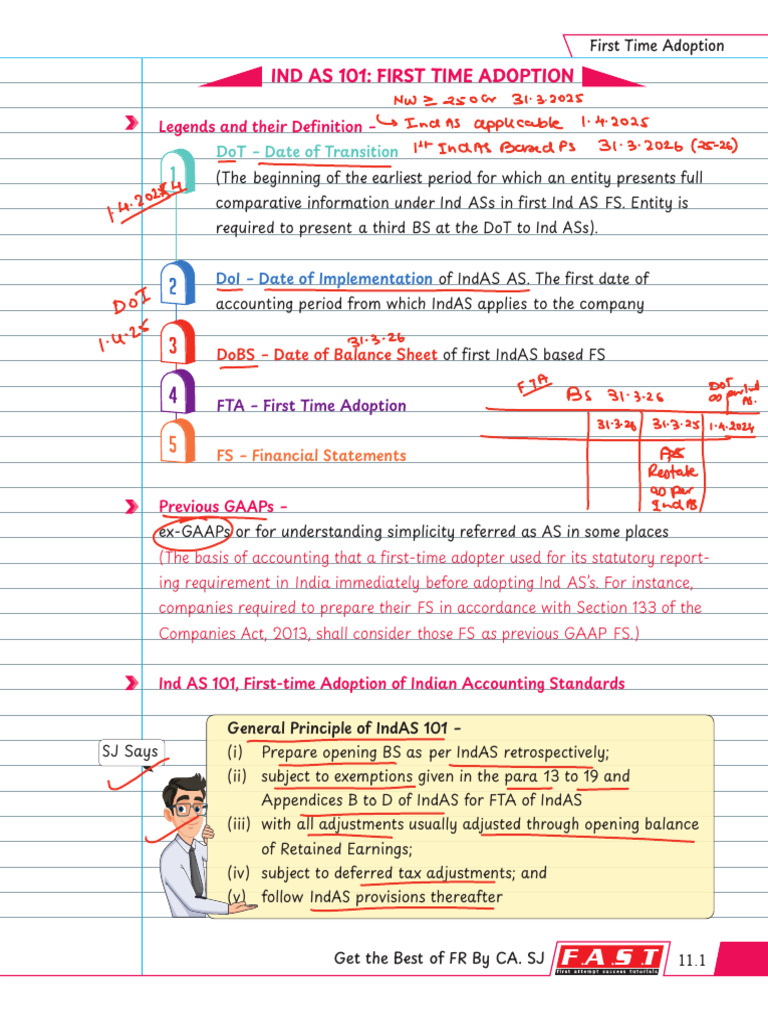 First Time Adoption
IND AS 101: FIRST TIME ADOPTION
NW ≥ 250 Cr 31.3.2025
Legends and their Definition - ↳ Ind AS applicable 1.4.2025
DoT – Date of Transition 1st Ind AS Based FS 31.3.2026 (25-26)
1
(The beginning of the earliest period for which an entity presents full
1.4.2024
comparative information under Ind ASs in first Ind AS FS. Entity is
required to present a third BS at the DoT to Ind ASs).
2
DoI – Date of Implementation of IndAS AS. The first date of
DOI
accounting period from which IndAS applies to the company
1.4.25
31.3.26
3
DoBS – Date of Balance Sheet of first IndAS based FS
4
FTA – First Time Adoption
FTA
BS 31.3.26
DOT
as per Ind
AS.
31.3.26 31.3.25 1.4.2024
5
FS – Financial Statements
AS
Restate
as per
Ind AS
Previous GAAPs –
ex-GAAPs or for understanding simplicity referred as AS in some places
(The basis of accounting that a first-time adopter used for its statutory report-
ing requirement in India immediately before adopting Ind AS’s. For instance,
companies required to prepare their FS in accordance with Section 133 of the
Companies Act, 2013, shall consider those FS as previous GAAP FS.)
Ind AS 101, First-time Adoption of Indian Accounting Standards
General Principle of IndAS 101 –
SJ Says
(i) Prepare opening BS as per IndAS retrospectively;
(ii) subject to exemptions given in the para 13 to 19 and
Appendices B to D of IndAS for FTA of IndAS
(iii) with all adjustments usually adjusted through opening balance
of Retained Earnings;
(iv) subject to deferred tax adjustments; and
(v) follow IndAS provisions thereafter
Get the Best of FR By CA. SJ
F.A.S.T
first attempt success tutorials
11.1